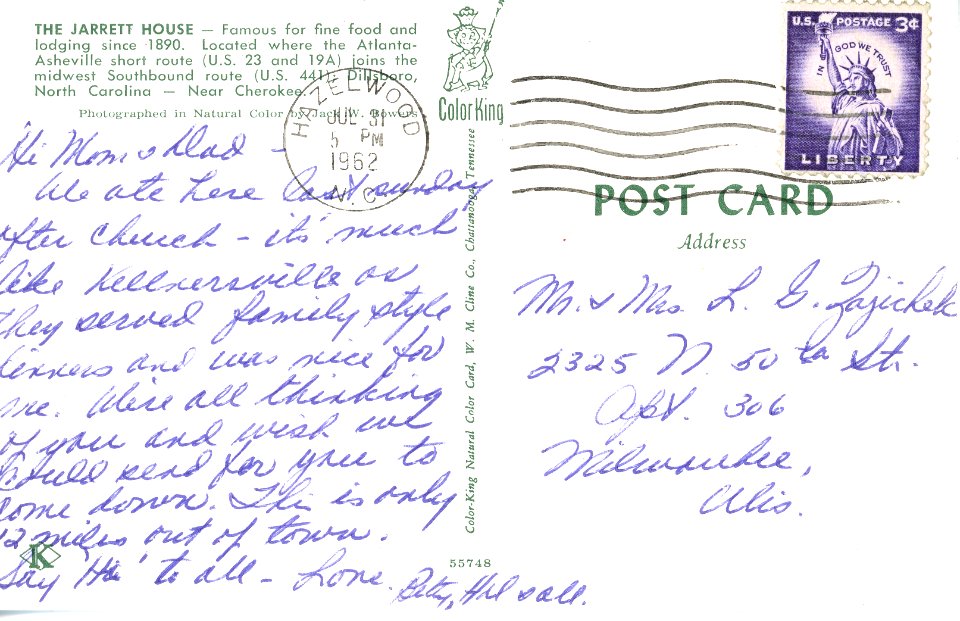 THE JARRETT HOUSE — Famous for fine food and
lodging since 1890. Located where the Atlanta-
Asheville short route (U.S. 23 and 19A) joins the
midwest Southbound route (U.S. 441), Dillsboro,
North Carolina — Near Cherokee.
Photographed in Natural Color by Jack W. Bowers
Color King
HAZELWOOD
JUL 31
5 PM
1962
N. C.
Hi Mom & Dad -
We ate here last sunday
after church - it's much
like Kellnersville as
they served family style
dinners and was nice for
me. We're all thinking
of you and wish we
could send for you to
come down. This is only
12 miles out of town.
Say "Hi" to all - Love.
Betty, Hal & all.
K
Color-King Natural Color Card, W. M. Cline Co., Chattanooga, Tennessee
55748
U.S. POSTAGE 3¢
IN GOD WE TRUST
LIBERTY
POST CARD
Address
Mr. & Mrs. L. G. Zajichek
2325 N. 50th St.
Apt. 306
Milwaukee,
Wis.